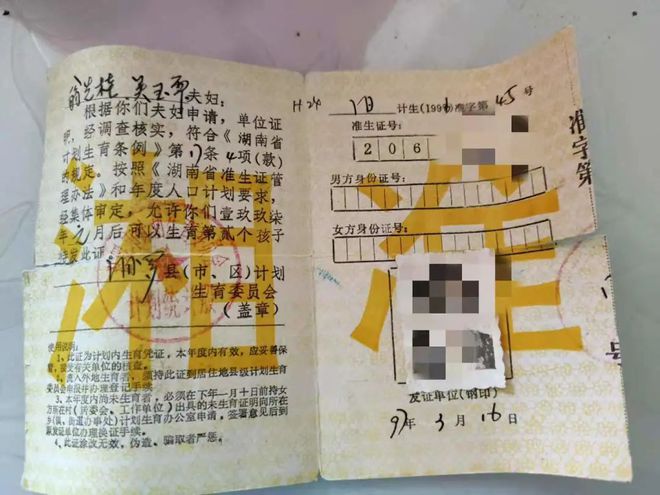 夫妇：
根据你们夫妇申请，单位证
明，经调查核实，符合《湖南省
计划生育条例》第17条4项（款）
的规定。按照《湖南省准生证管
理办法》和年度人口计划要求，
经集体审定，允许你们壹玖玖柒
年元月后可以生育第贰个孩子
特发此证
湘乡县（市、区）计划
生育委员会
（盖章）
使用说明：
1、此证为计划内生育凭证，本年度内有效，应妥善保
管，接受有关单位的核查。
2、流入外地生育者，须持此证到居住地县级计划生育
委员会申报并办理登记手续。
3、本年度内尚未生育者，必须在下年一月十日前持女
方所在村（居委会、工作单位）出具的未生育证明向所在
乡（镇、街道办事处）计划生育办公室申请，签署意见后到
原发证单位办理换证手续。
4、此证涂改无效，伪造、骗取者严惩。
湘
H24
计生（199）准字第45号
准生证号：
206
男方身份证号：
女方身份证号：
准
发证单位（钢印）
97年3月16日
准字第
号